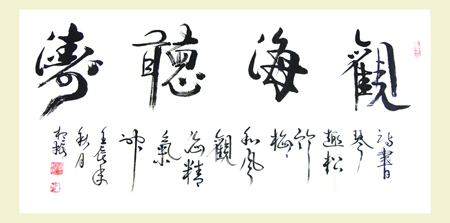 觀海聽濤
诗書
琴
趣松
竹
梅
和风
觀
海精
氣
神
壬辰年
秋月